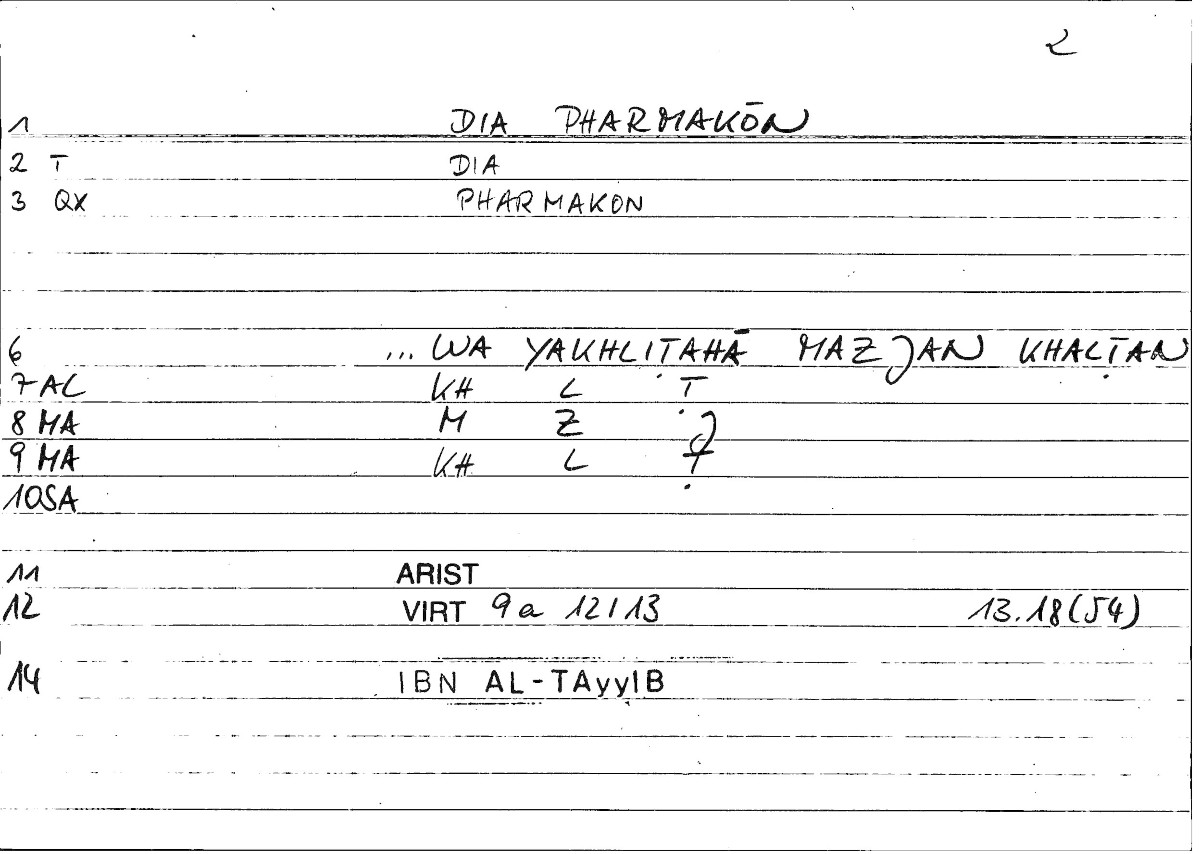 2
1 DIA PHARMAKŌN
2 T DIA
3 QX PHARMAKON
6 ... WA YAKHLIṬAHĀ MAZJAN KHALṬAN
7 AL KH L Ṭ
8 MA M Z J
9 MA KH L Ṭ
10 SA
11 ARIST
12 VIRT 9a 12/13 13.18(54)
14 IBN AL-ṬAyyIB